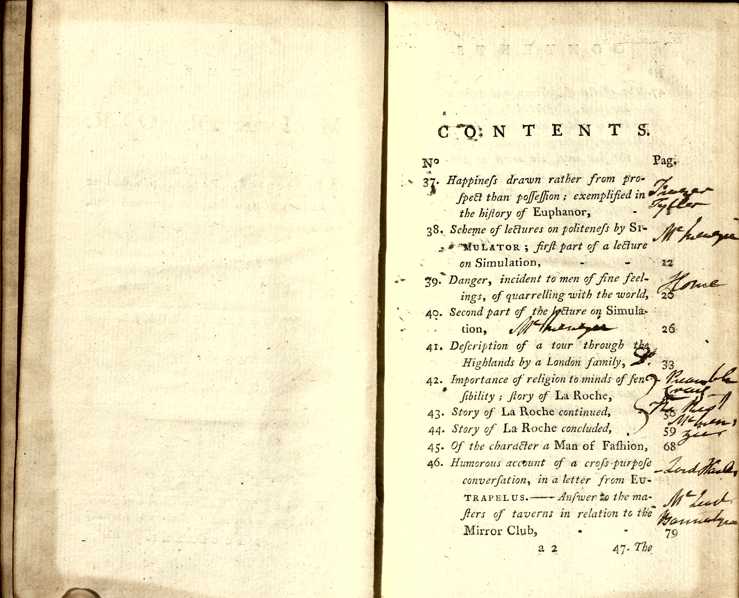 CONTENTS.
No Pag.
37. Happineſs drawn rather from pro-
ſpect than poſſeſſion; exemplified in
the hiſtory of Euphanor, - Frazer Tytler
38. Scheme of lectures on politeneſs by SI-
MULATOR; firſt part of a lecture
on Simulation, - - 12
39. Danger, incident to men of fine feel-
ings, of quarrelling with the world, 20 Home
40. Second part of the lecture on Simula-
tion, 26
41. Deſcription of a tour through the
Highlands by a London family, Do. 33
42. Importance of religion to minds of ſen-
ſibility; ſtory of La Roche,
Craig
43. Story of La Roche continued, 50 The Rest
44. Story of La Roche concluded, 59
45. Of the character a Man of Faſhion, 68
46. Humorous account of a croſs-purpoſe
converſation, in a letter from EU-
TRAPELUS.——Anſwer to the ma-
ſters of taverns in relation to the
Mirror Club, - - 79
a 2 47. The